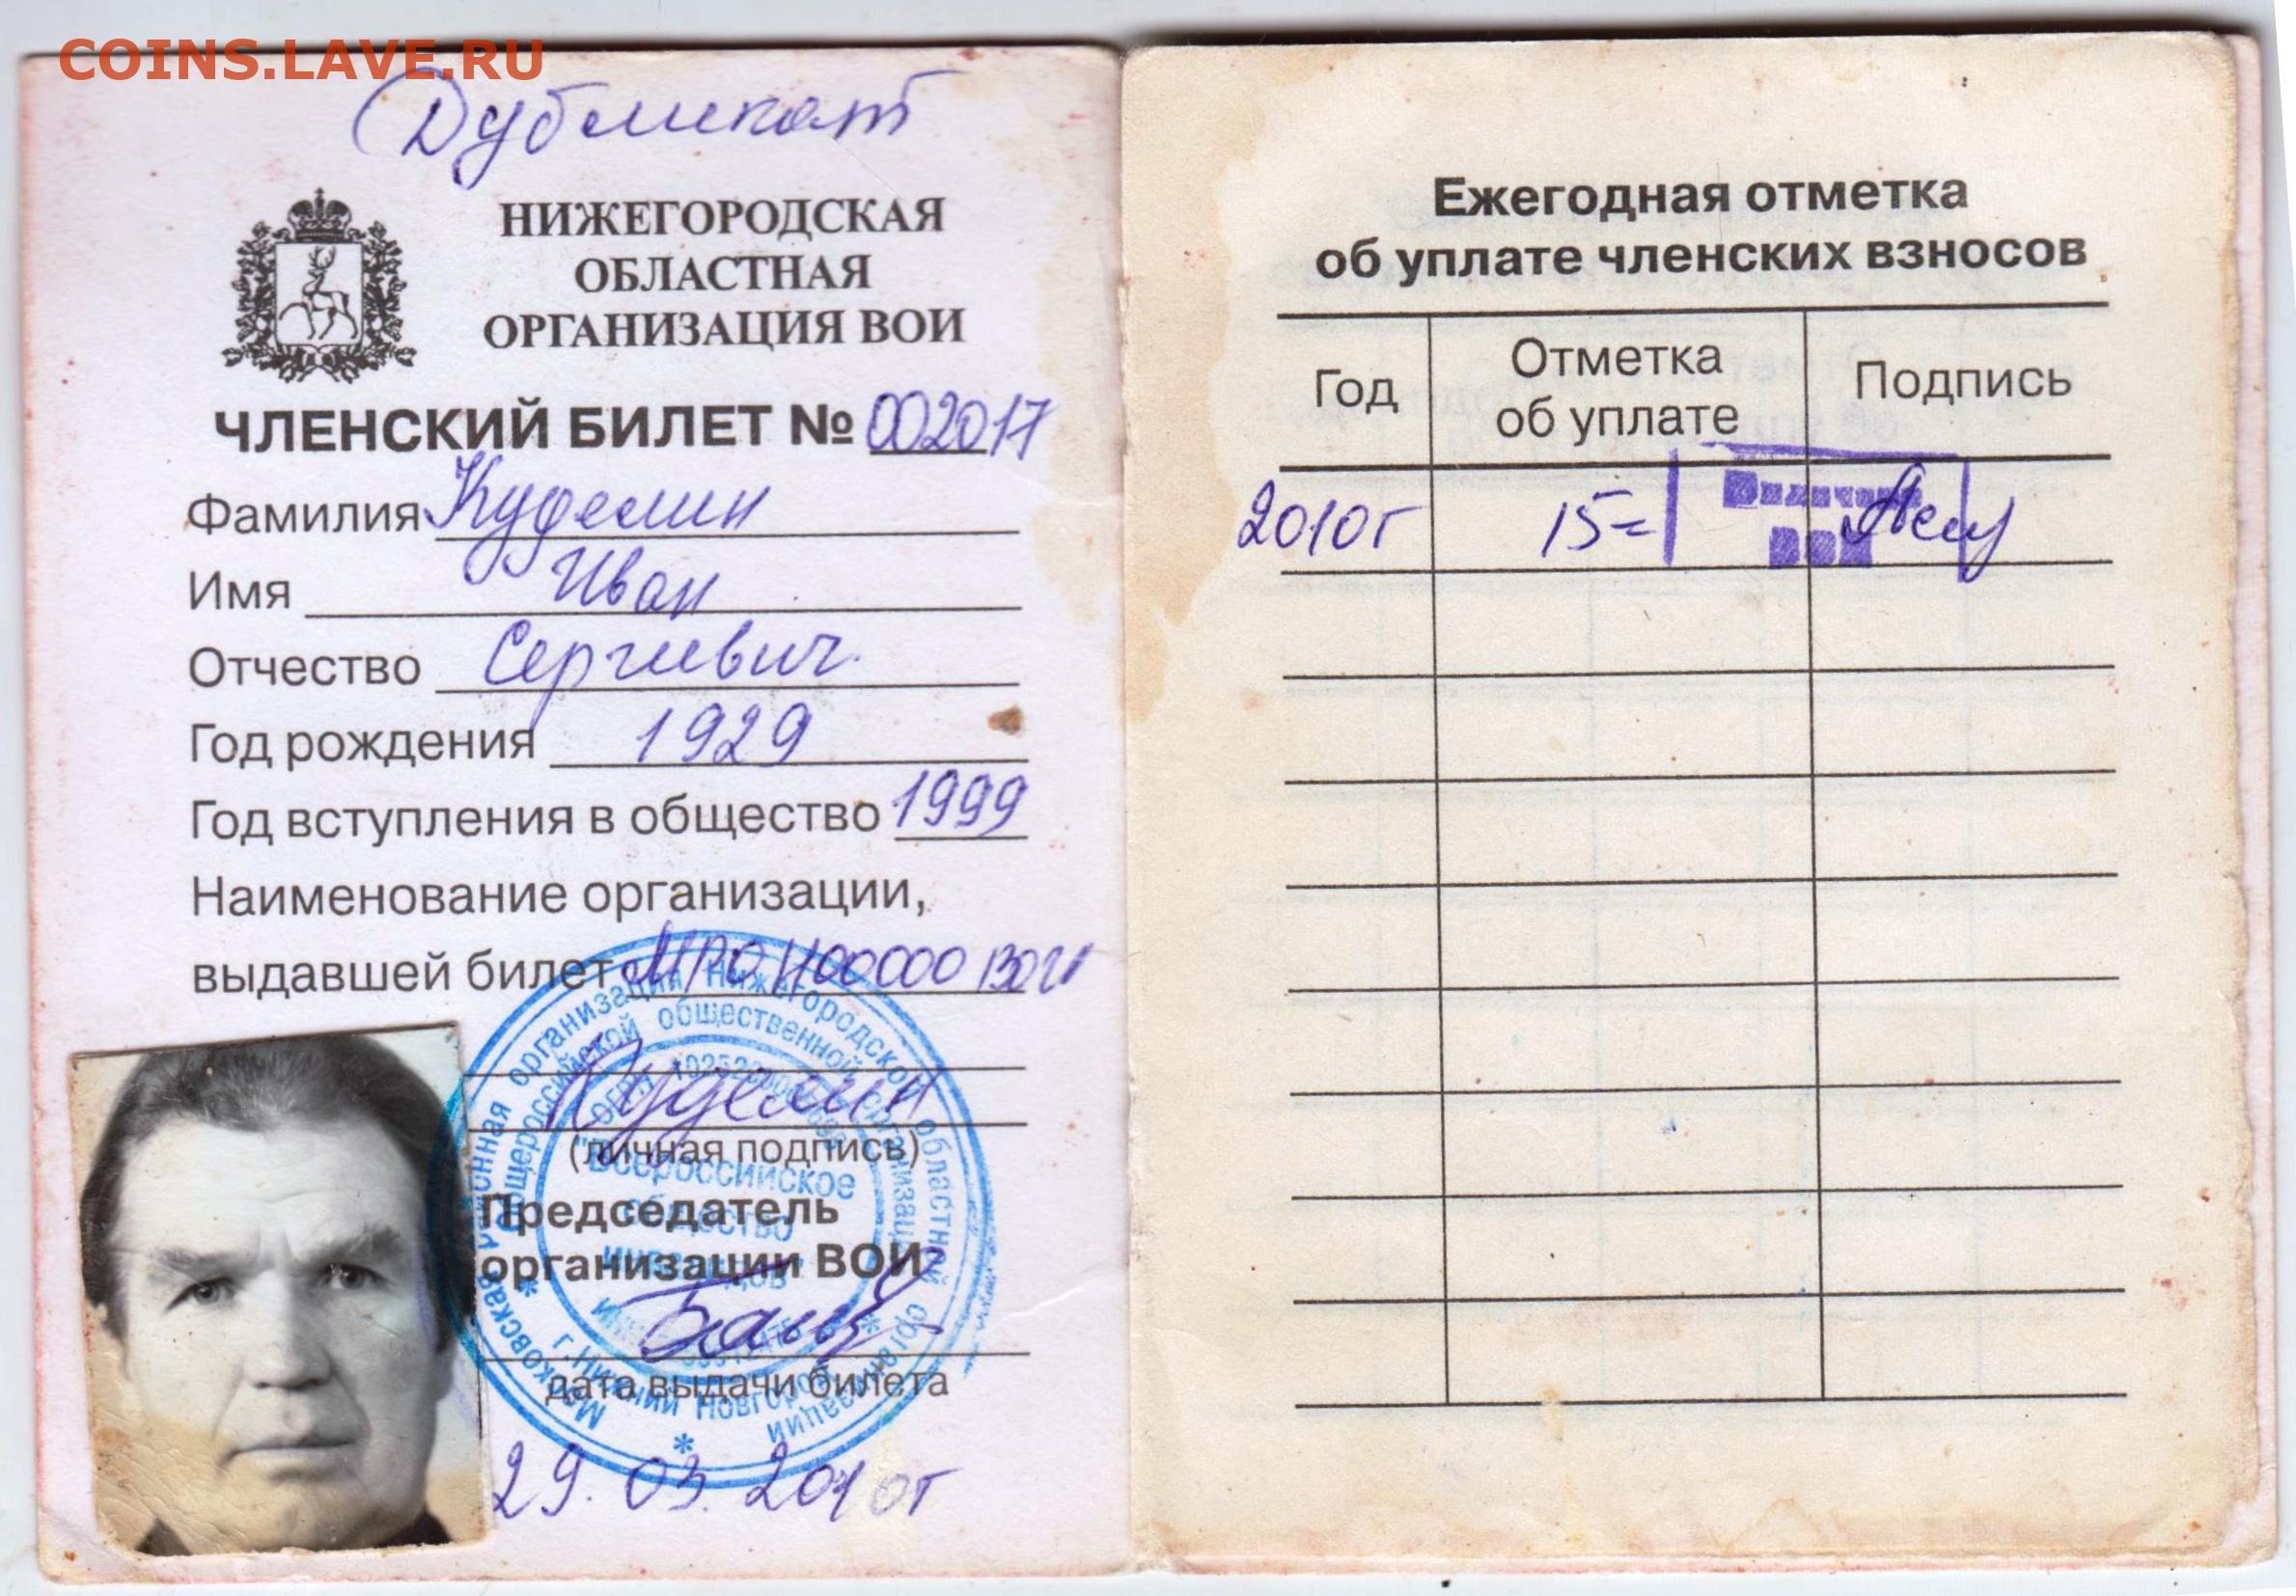 COINS.LAVE.RU
Дубликат
НИЖЕГОРОДСКАЯ
ОБЛАСТНАЯ
ОРГАНИЗАЦИЯ ВОИ
ЧЛЕНСКИЙ БИЛЕТ № 002017
Фамилия Куделин
Имя Иван
Отчество Сергиевич
Год рождения 1929
Год вступления в общество 1999
Наименование организации,
выдавшей билет МРО НОООООО ВОИ
Куделин
(личная подпись)
Председатель
организации ВОИ
дата выдачи билета
29.03.2010г
Московская районная организация Нижегородской областной организации
Общероссийской общественной организации
Всероссийское
общество
инвалидов
г. Нижний Новгород
Ежегодная отметка
об уплате членских взносов
Год Отметка об уплате Подпись
2010г 15=
ВОИ